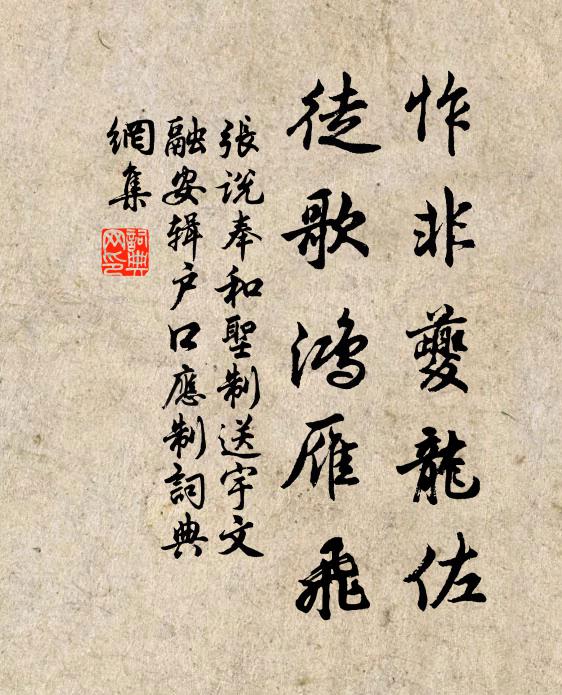 怍非夔龍佐
徒歌鴻雁飛
張説奉和聖制送宇文
融安辑户口應制詞典
網集
詞典
网印